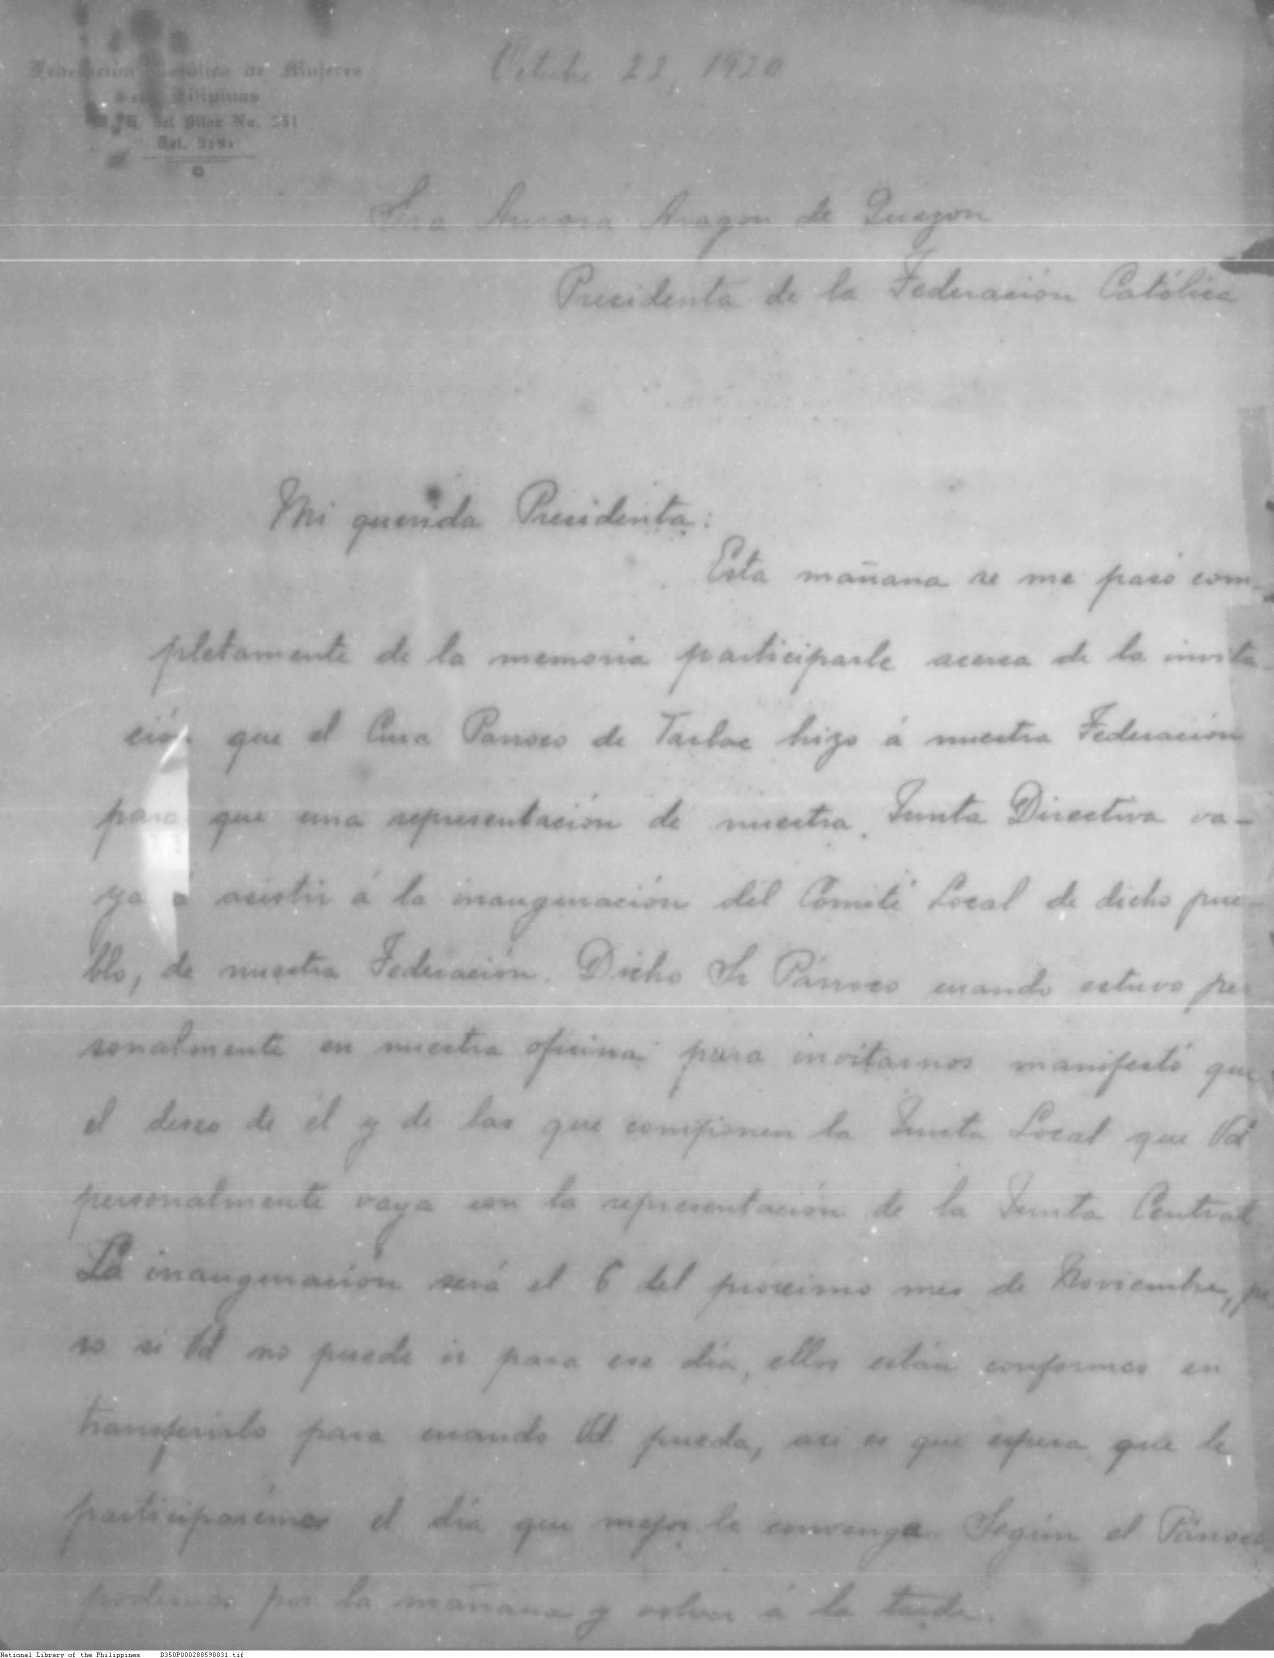 Federación Católica de Mujeres
de Filipinas
del Pilar No. 551
Tel.
Octubre 22, 1920
Sra Aurora Aragon de Quezon
Presidenta de la Federación Católica
Mi querida Presidenta:
Esta mañana se me pasó com-
pletamente de la memoria participarle acerca de la invita-
ción que el Cura Parroco de Tarlac hizo á nuestra Federación
para que una representación de nuestra Junta Directiva va-
ya a asistir á la inauguración del Comité Local de dicho pue-
blo, de nuestra Federación. Dicho Sr Párroco cuando estuvo per
sonalmente en nuestra oficina para invitarnos manifestó que
el deseo de él y de las que componen la Junta Local que Vd
personalmente vaya con la representación de la Junta Central
La inauguración será el 6 del próximo mes de Noviembre, pe
ro si Vd no puede ir para ese día, ellos están conformes en
transferirlo para cuando Vd pueda, asi es que espera que le
participaremos el día que mejor le convenga. Según el Párroco
podemos por la mañana y volver á la tarde.
National Library of the Philippines D350P000288598031.tif